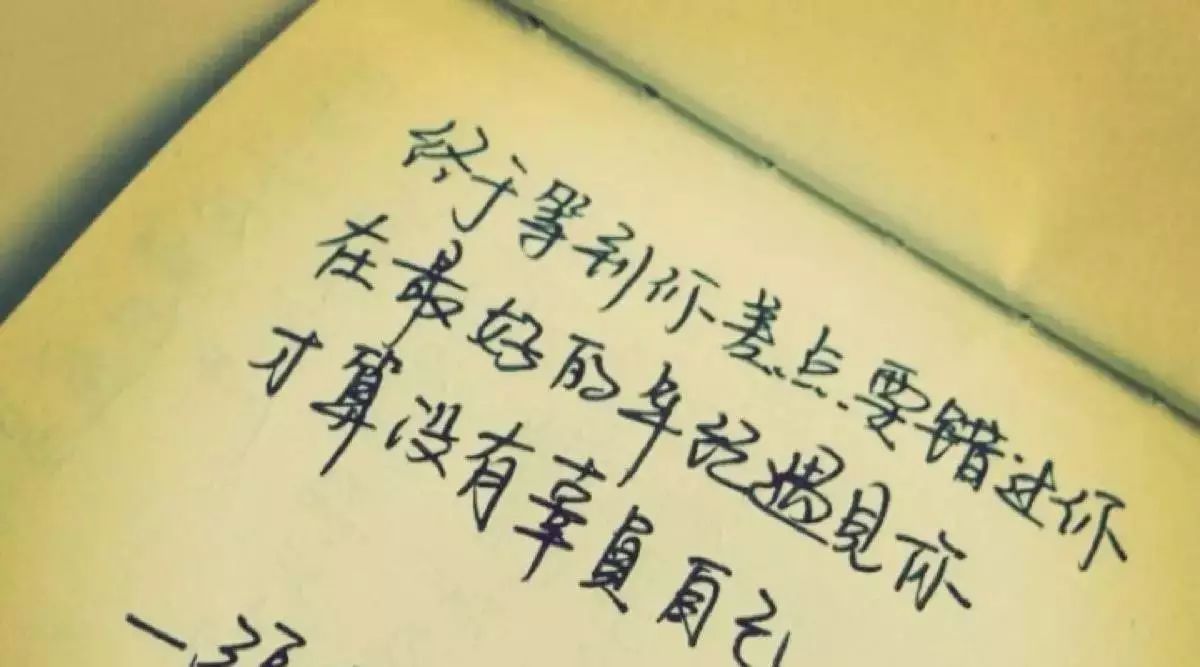 终于等到你差点要错过你
在最好的年纪遇见你
才算没有辜負自己